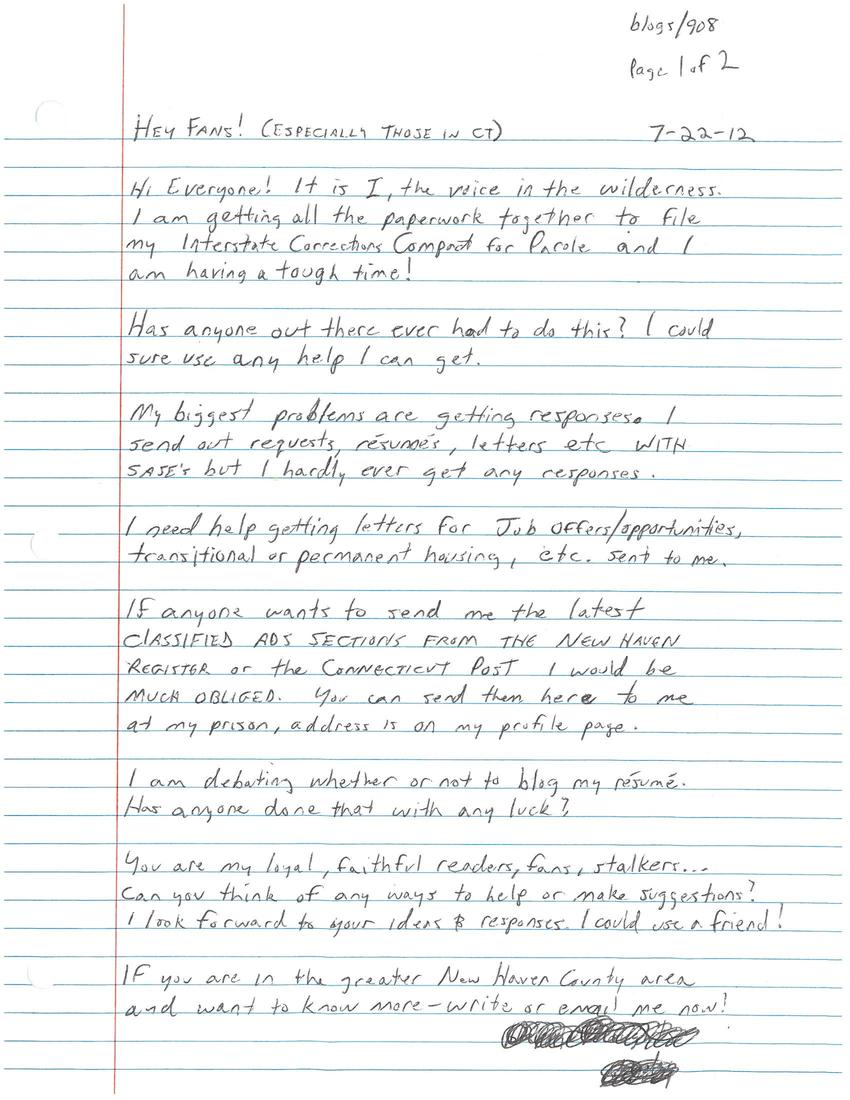 blogs/908
Page 1 of 2
HEY FANS! (ESPECIALLY THOSE IN CT) 7-22-12
Hi Everyone! It is I, the voice in the wilderness.
I am getting all the paperwork together to file
my Interstate Corrections Compact for Parole and I
am having a tough time!
Has anyone out there ever had to do this? I could
sure use any help I can get.
My biggest problems are getting responses. I
send out requests, résumés, letters etc WITH
SASE's but I hardly ever get any responses.
I need help getting letters for Job offers/opportunities,
transitional or permanent housing, etc. sent to me.
If anyone wants to send me the latest
CLASSIFIED ADS SECTIONS FROM THE NEW HAVEN
REGISTER or the CONNECTICUT POST I would be
MUCH OBLIGED. You can send them here to me
at my prison, address is on my profile page.
I am debating whether or not to blog my résumé.
Has anyone done that with any luck?
You are my loyal, faithful readers, fans, stalkers...
Can you think of any ways to help or make suggestions?
I look forward to your ideas & responses. I could use a friend!
IF you are in the greater New Haven County area
and want to know more-write or email me now!